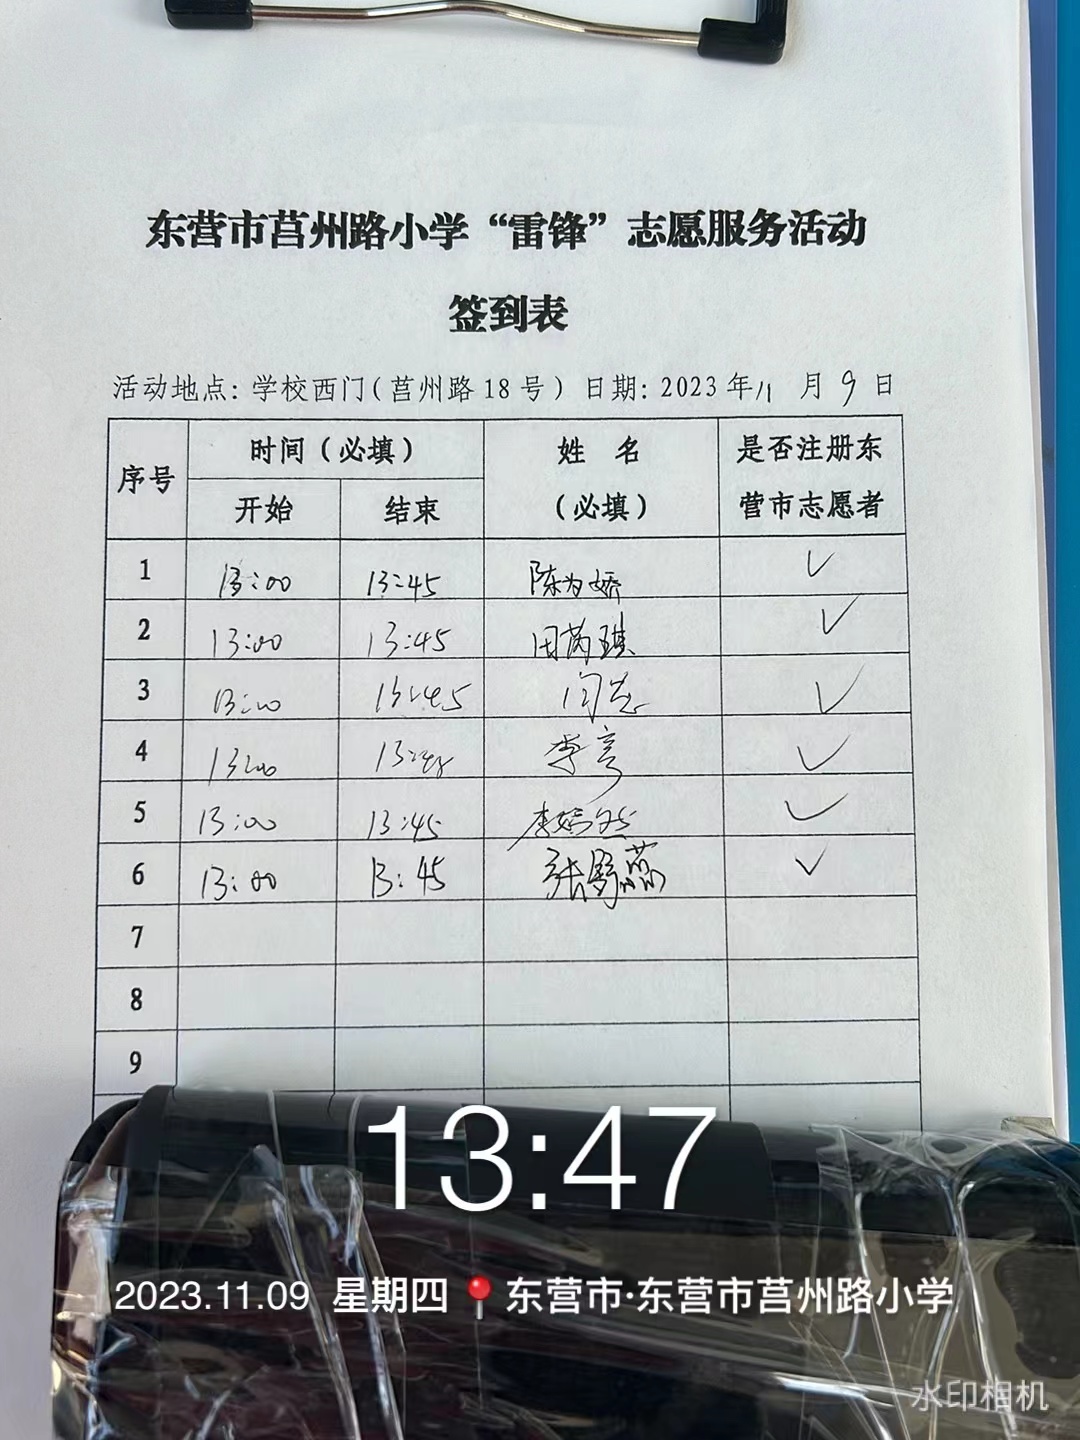 东营市莒州路小学“雷锋”志愿服务活动
签到表
活动地点：学校西门（莒州路18号）日期：2023年11月9日
序号 时间（必填） 姓名（必填） 是否注册东营市志愿者
开始 结束
1 13:00 13:45 陈为娇 ✓
2 13:00 13:45 田芮琪 ✓
3 13:00 13:45 闫芯 ✓
4 13:00 13:45 李亭 ✓
5 13:00 13:45 李嫣然 ✓
6 13:00 13:45 张舒蕊 ✓
7
8
9
13:47
2023.11.09 星期四 东营市·东营市莒州路小学
水印相机